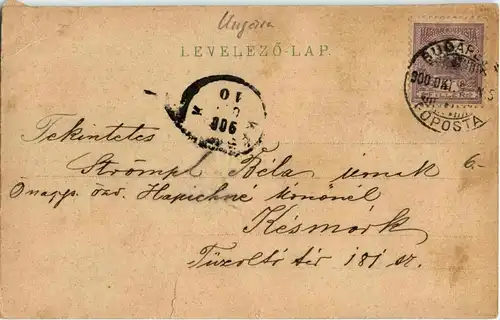 Ungarn
LEVELEZŐ-LAP.
BUDAPE
900 OKT
FŐPOSTA
10
900
K
Tekintetes
Strömpl Béla urnak
6-
Önagys. özv. Hapichné úrnőnél
Késmárk
Tűzoltó tér 181 sz.